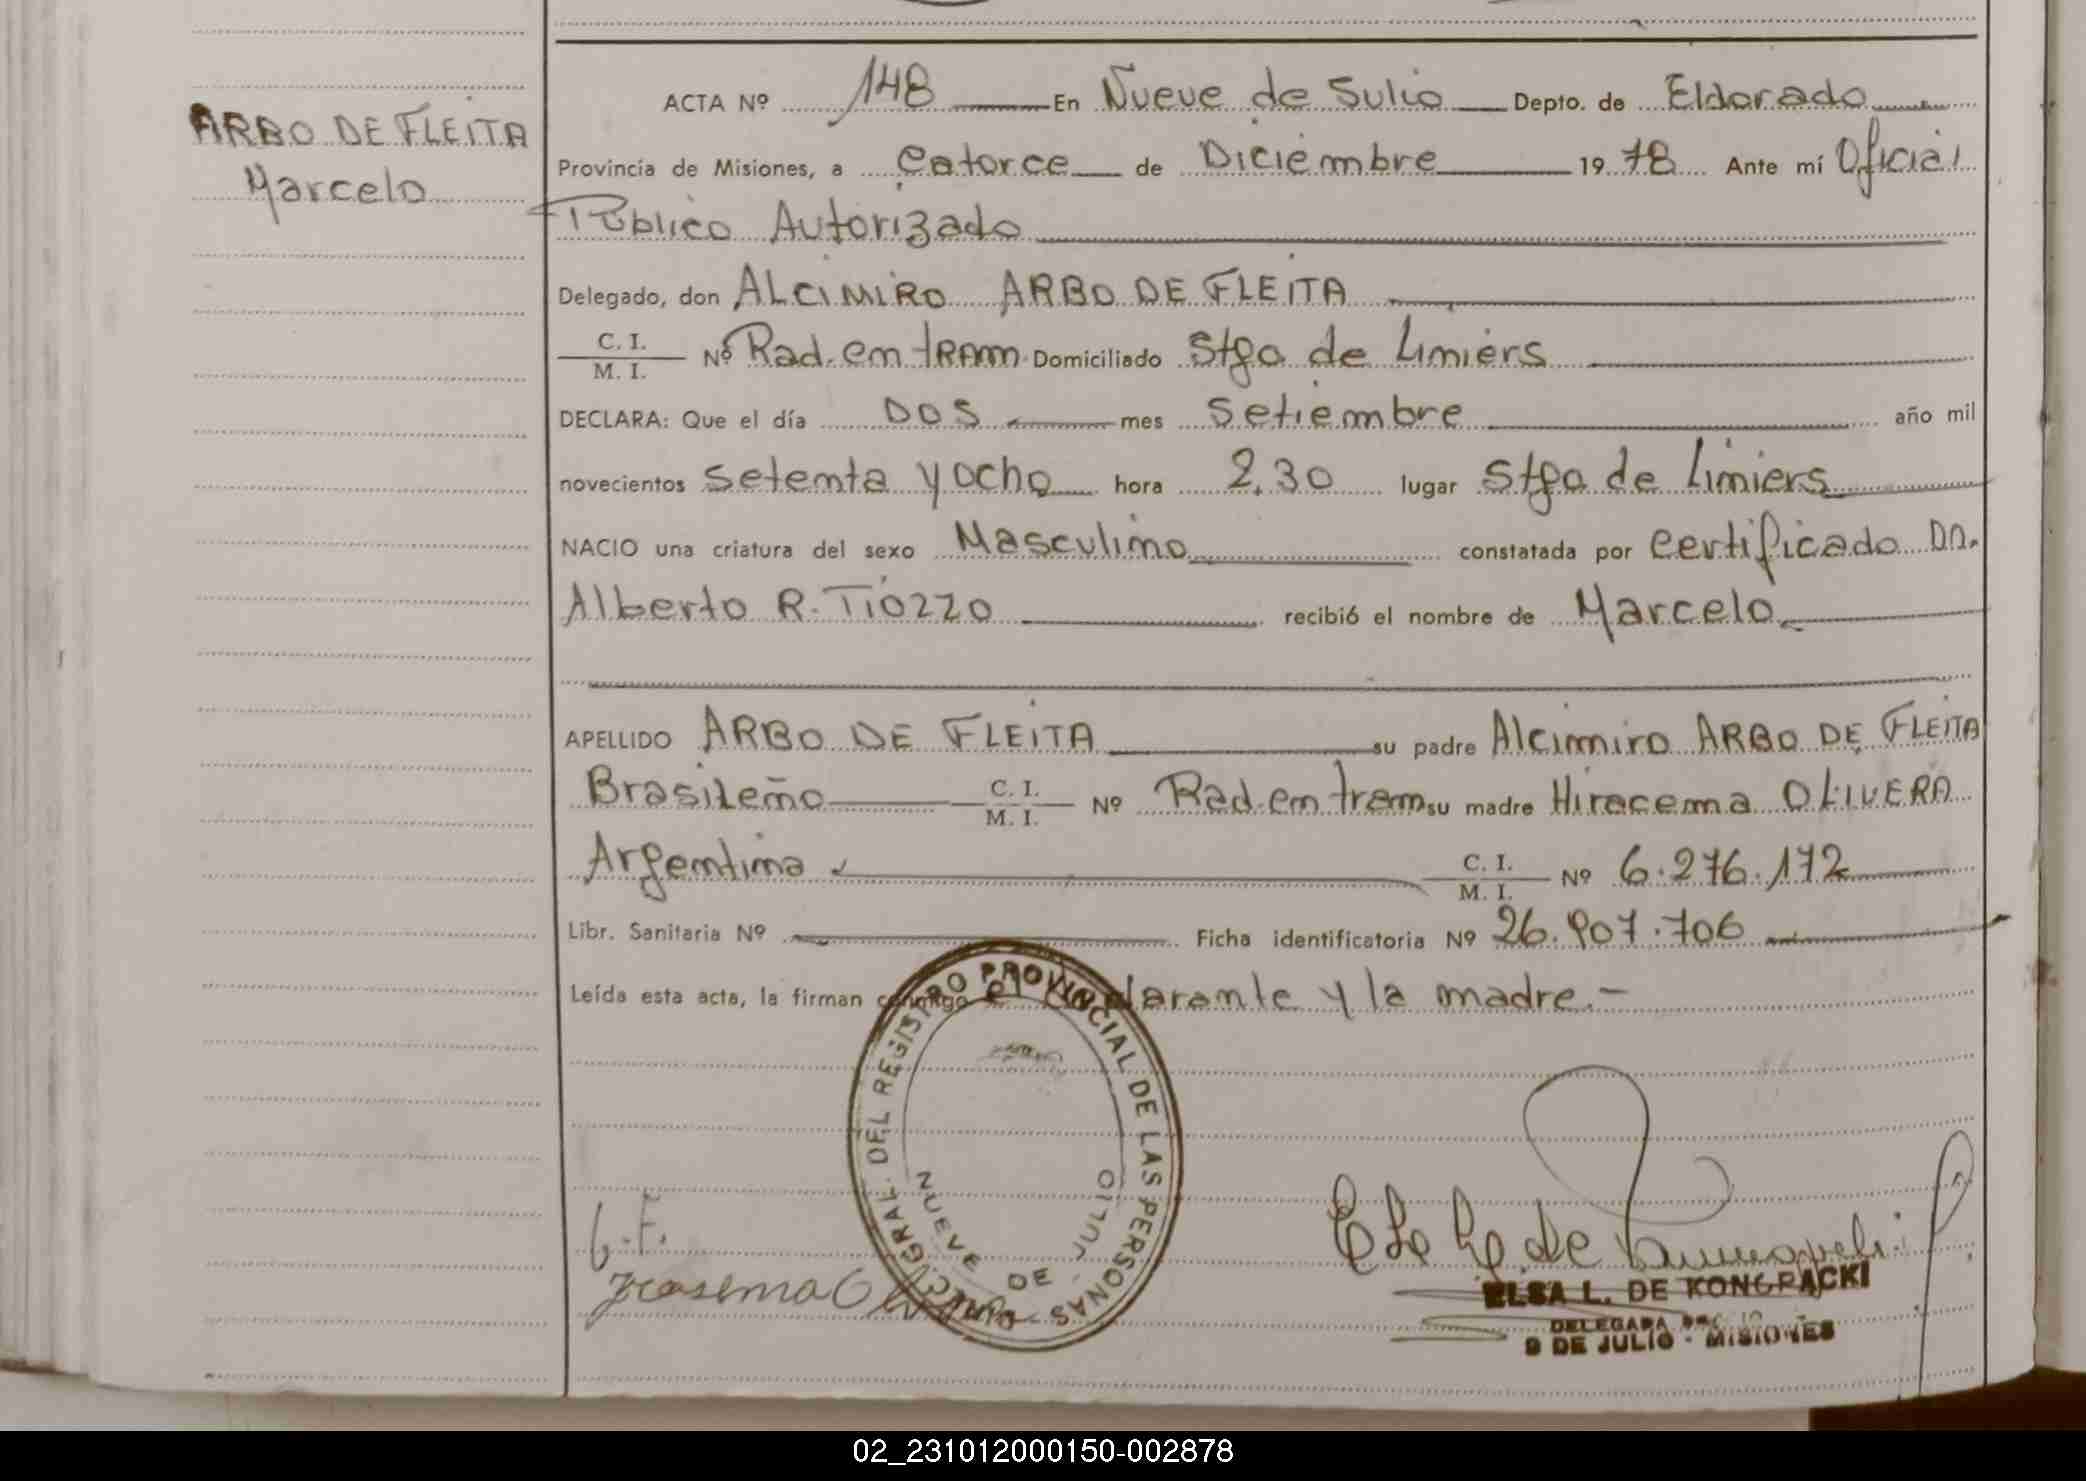 ARBO DE FLEITA
Marcelo
ACTA Nº 148 En Nueve de Sulio Depto. de Eldorado
Provincia de Misiones, a Catorce de Diciembre 1978 Ante mí Oficial
Público Autorizado
Delegado, don ALCIMIRO ARBO DE FLEITA
C. I.
M. I. Nº Rad. en tram. Domiciliado Stgo de Limiers
DECLARA: Que el día DOS mes Setiembre año mil
novecientos setenta y ocho hora 2,30 lugar Stgo de Limiers
NACIO una criatura del sexo Masculino constatada por Certificado DR.
Alberto R. TIOZZO recibió el nombre de Marcelo
APELLIDO ARBO DE FLEITA su padre Alcimiro ARBO DE FLEITA
Brasileño C. I.
M. I. Nº Rad. en tram su madre Hiracema OLIVERA
Argentina C. I.
M. I. Nº 6.276.172
Libr. Sanitaria Nº Ficha identificatoria Nº 26.907.706
Leída esta acta, la firman conmigo el declarante y la madre.-
GRAL. DEL REGISTRO PROVINCIAL DE LAS PERSONAS
NUEVE DE JULIO
ELSA L. DE KONGRACKI
DELEGADA
9 DE JULIO - MISIONES
02_231012000150-002878